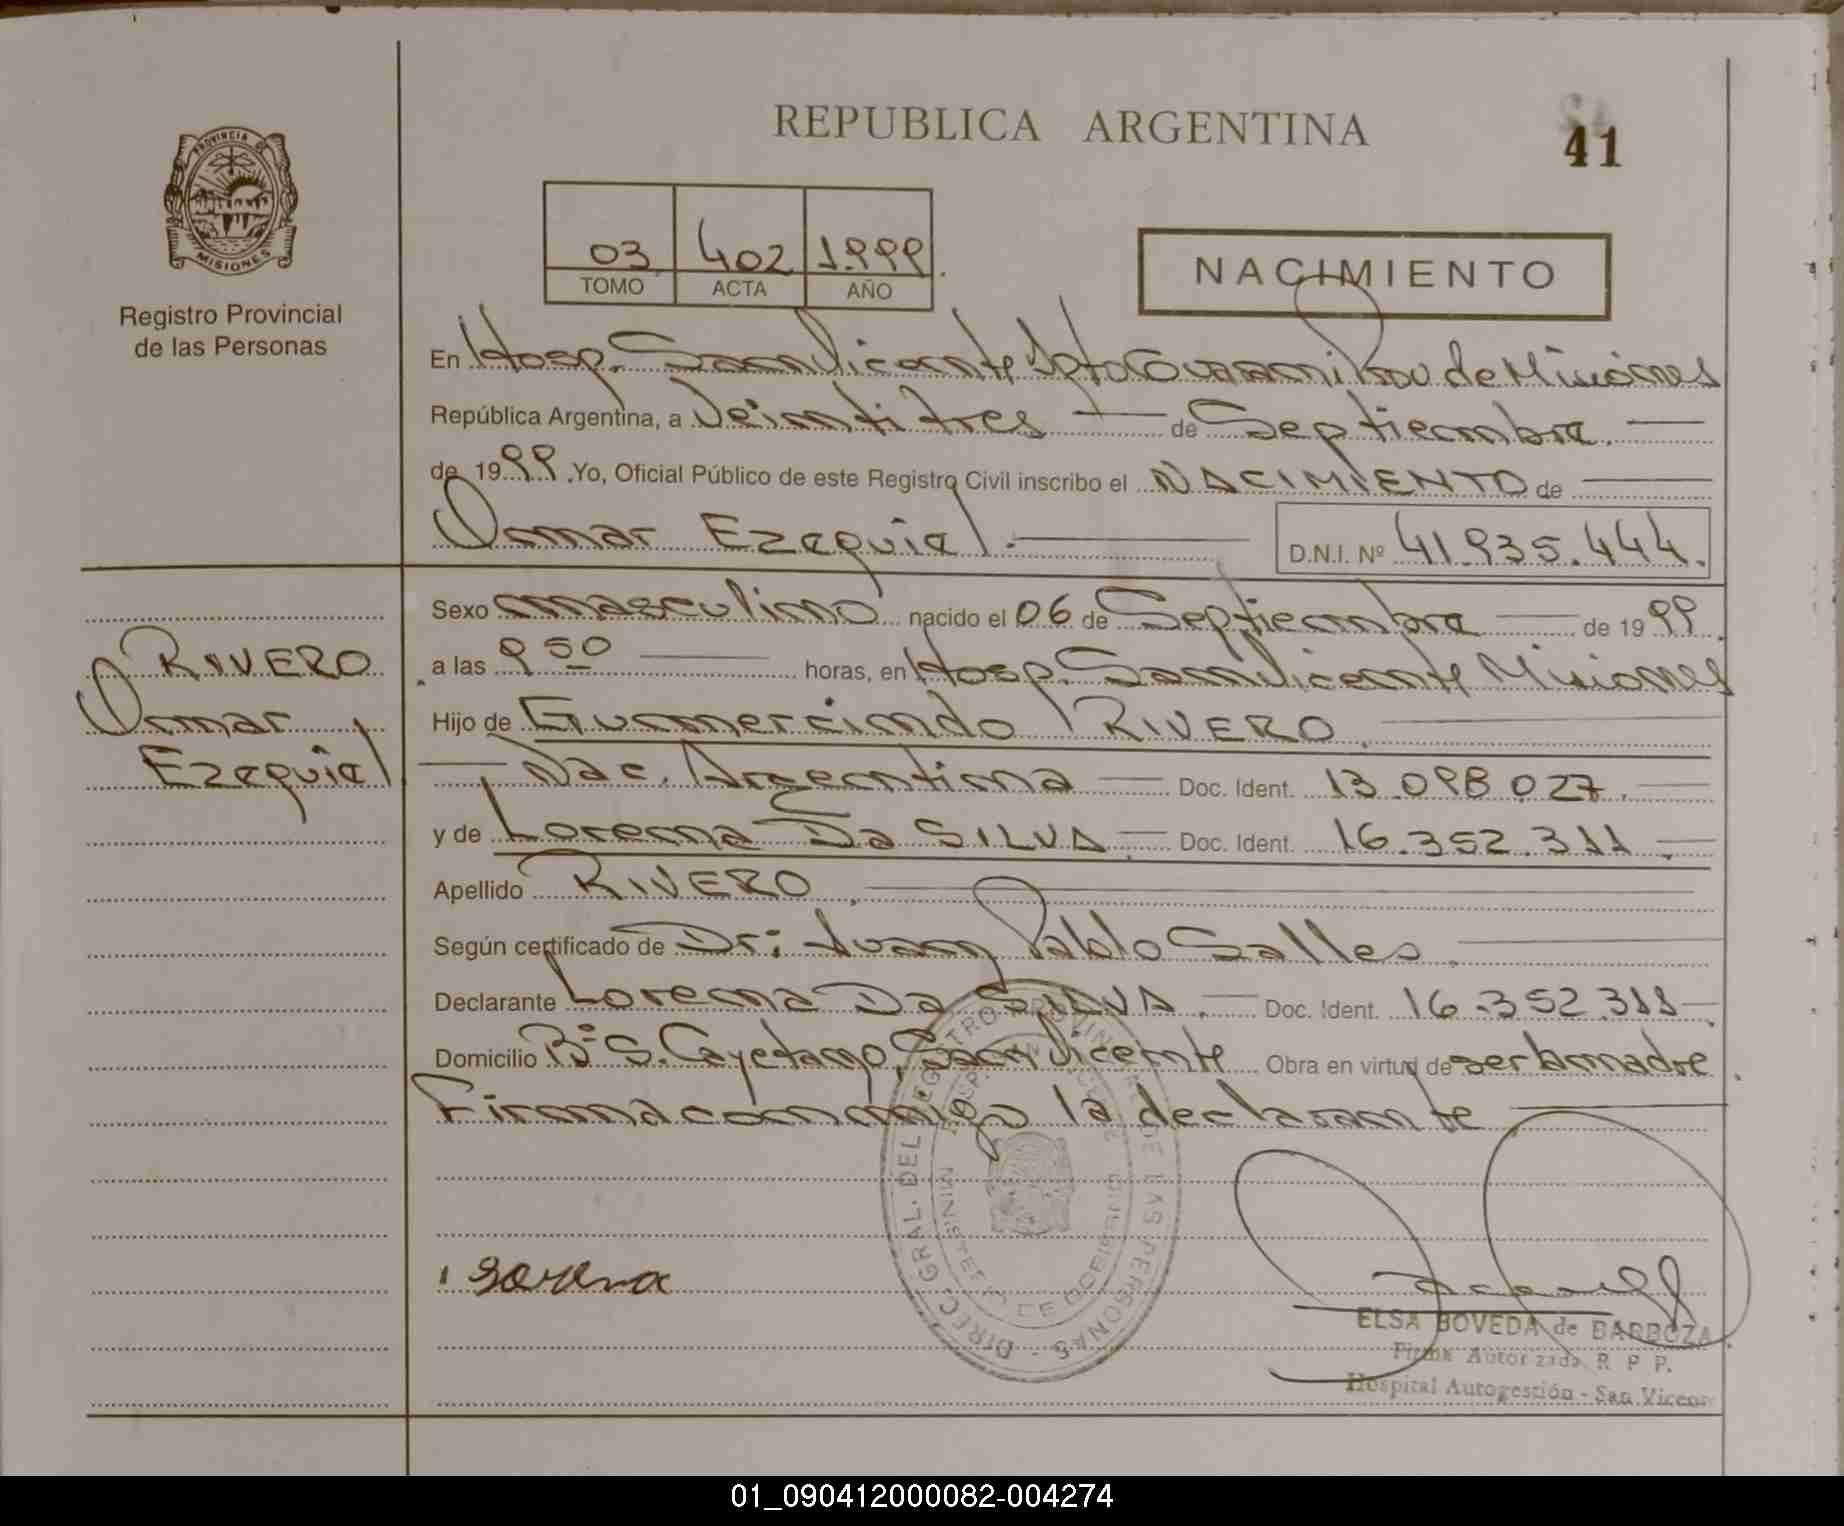 REPUBLICA ARGENTINA
41
PROVINCIA DE
MISIONES
Registro Provincial
de las Personas
03 402 1999
TOMO ACTA AÑO
NACIMIENTO
En Hosp. San Vicente Dpto Guarani Prov de Misiones
República Argentina, a Veintitres de Septiembre.
de 1999. Yo, Oficial Público de este Registro Civil inscribo el NACIMIENTO de
Omar Ezequiel. D.N.I. Nº 41.935.444.
Sexo masculino nacido el 06 de Septiembre de 1999.
RIVERO
Omar
Ezequiel
a las 9 50 horas, en Hosp. San Vicente Misiones
Hijo de Gumercindo RIVERO.
Nac. Argentina Doc. Ident. 13.098.027.
y de Lorena Da SILVA. Doc. Ident. 16.352.311.
Apellido RIVERO.
Según certificado de Dr: Juan Pablo Salles.
Declarante Lorena Da SILVA. Doc. Ident. 16.352.311.
Domicilio Bº S. Cayetano, San Vicente Obra en virtud de ser la madre.
Firma conmigo la declarante.
DIREC. GRAL. DEL REGISTRO PROVINCIAL DE LAS PERSONAS -
MINISTERIO DE GOBIERNO
ELSA BOVEDA de BARBOZA
Firma Autorizada R. P. P.
Hospital Autogestión - San Vicente
01_090412000082-004274